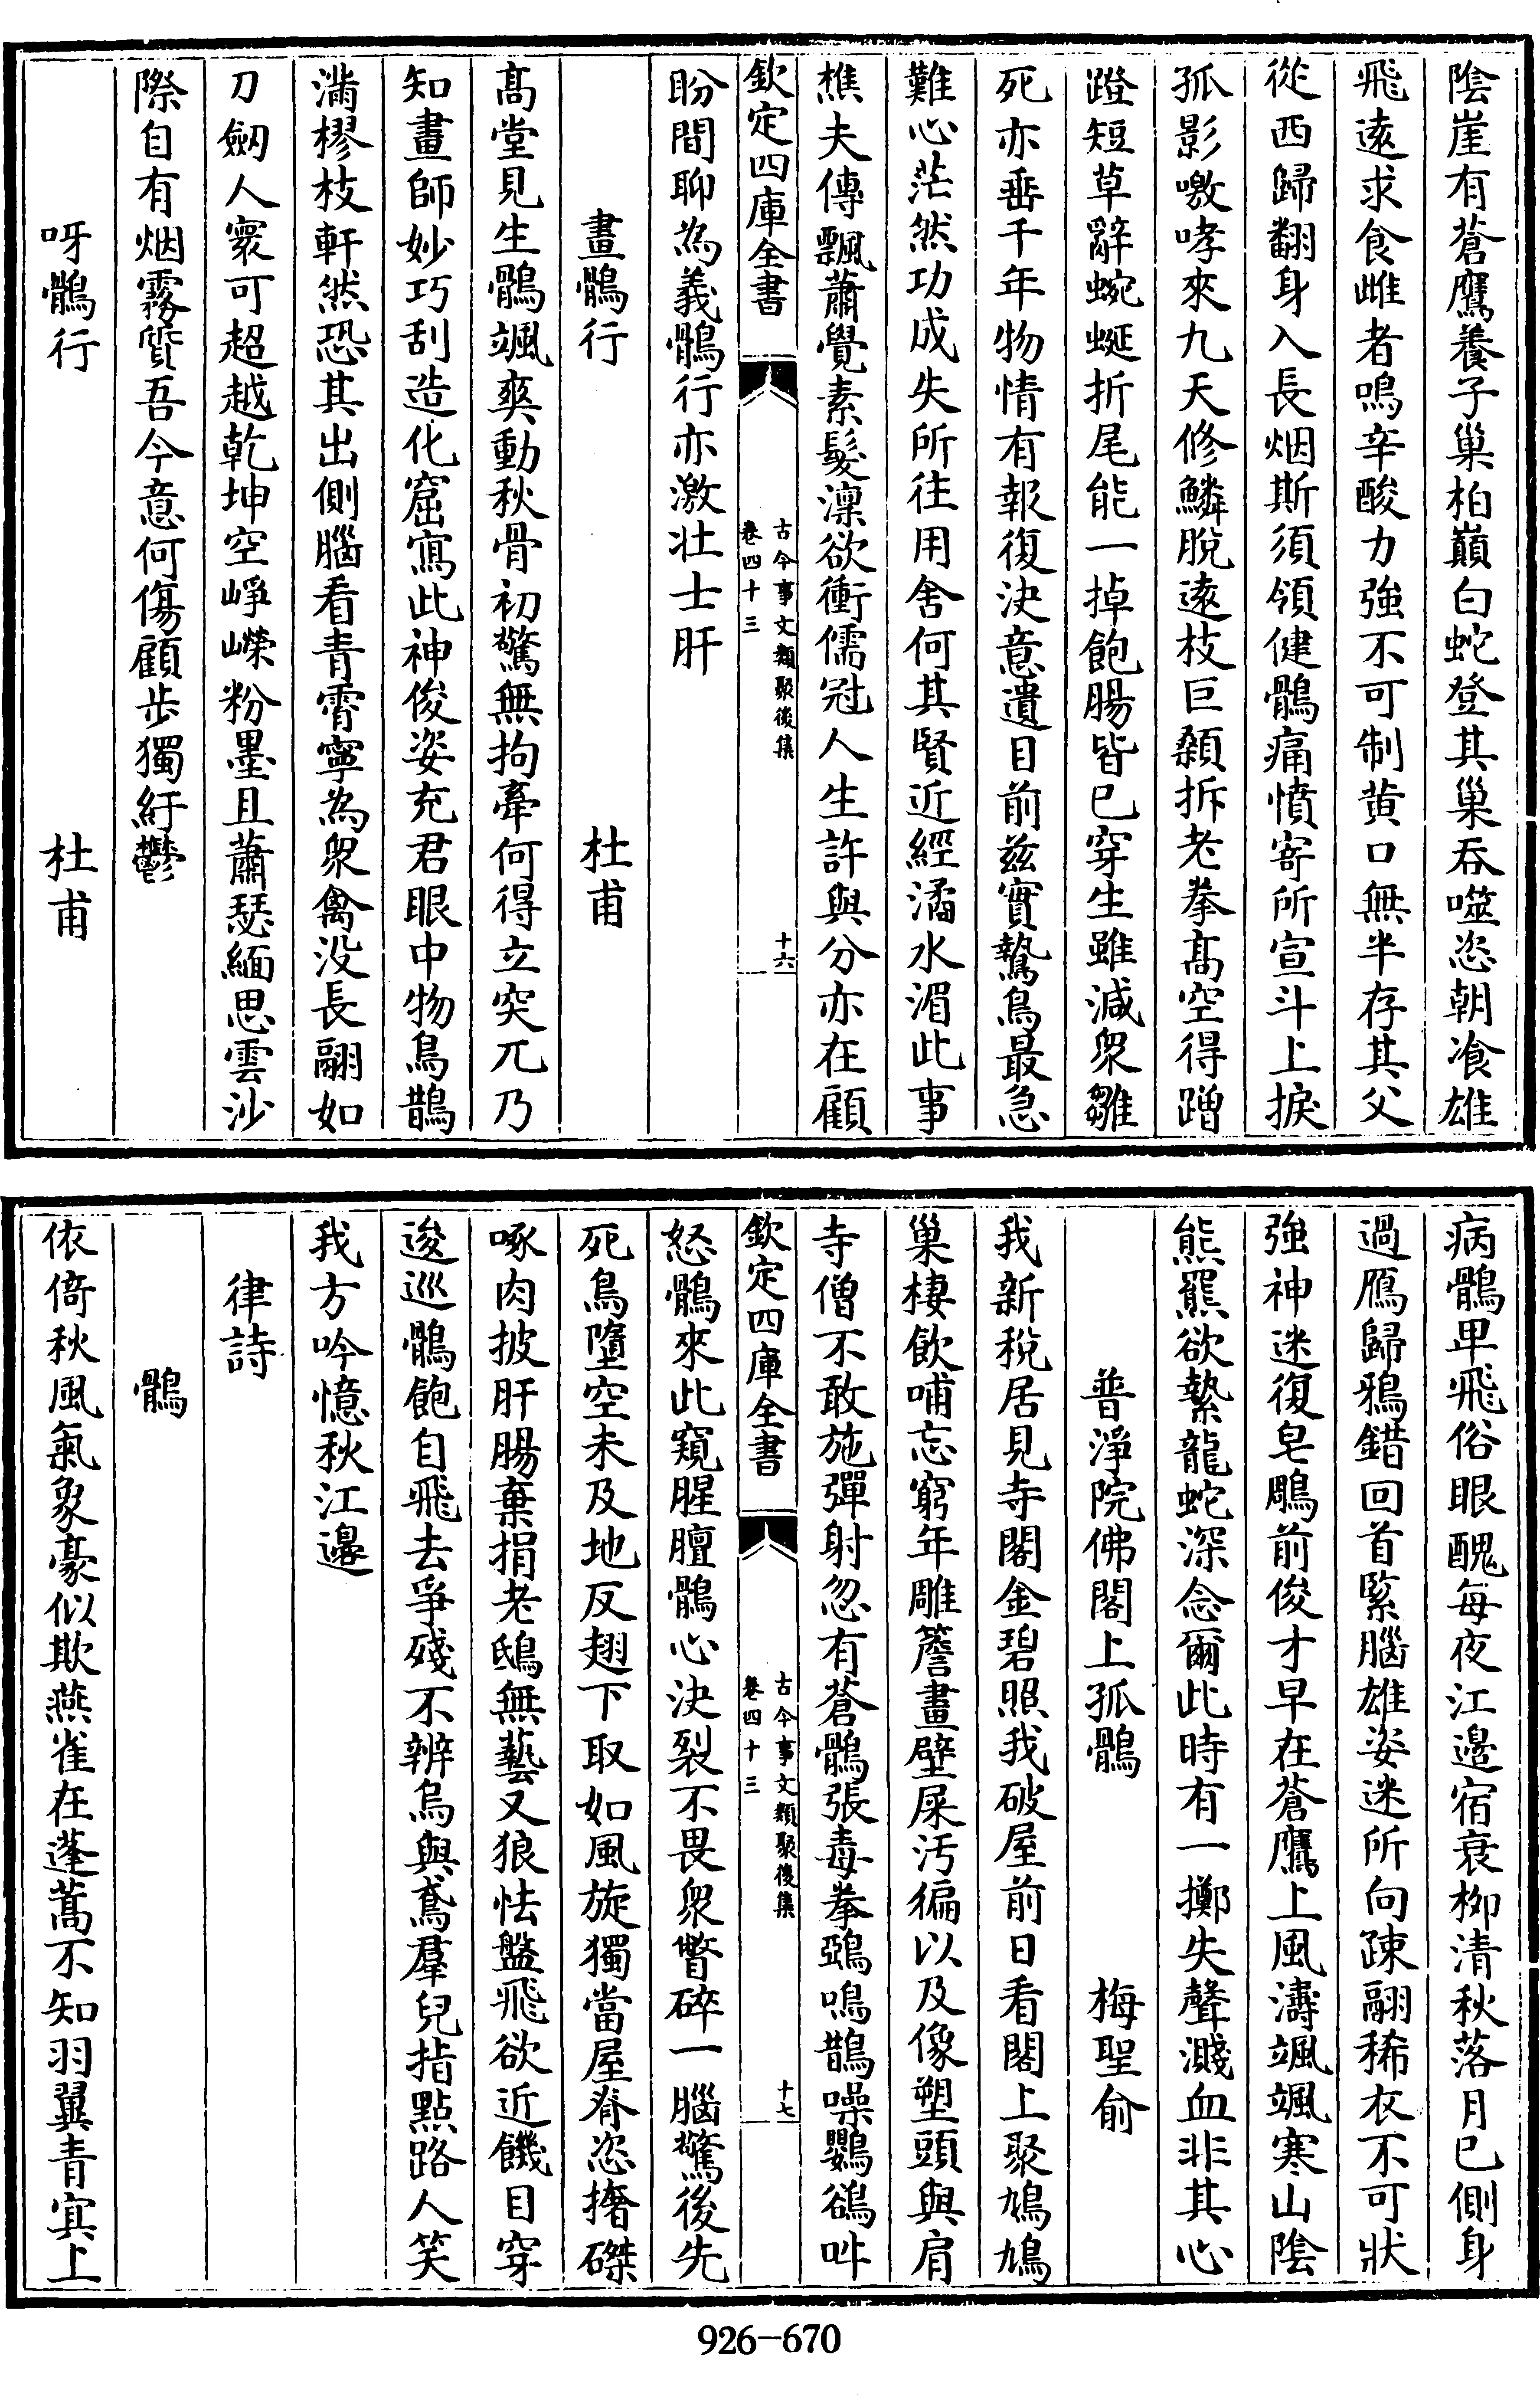 陰崖有蒼鷹養子巢柏巔白蛇登其巢吞噬恣朝飡雄
飛逺求食雌者鳴辛酸力強不可制黄口無半存其父
從西歸翻身入長烟斯須領健鶻痛憤寄所宣斗上捩
孤影噭哮來九天修鱗脫逺枝巨顙拆老拳髙空得蹭
蹬短草辭蜿蜒折尾能一掉飽腸皆已穿生雖減衆雛
死亦垂千年物情有報復決意遺目前兹實鷙鳥最急
難心茫然功成失所往用舍何其賢近經潏水湄此事
樵夫傳飄蕭覺素髮凜欲衝儒冠人生許與分亦在顧
欽定四庫全書
古今事文類聚後集
卷四十三
十六
盼間聊為義鶻行亦激壯士肝
畫鶻行 杜甫
髙堂見生鶻颯爽動秋骨初驚無拘牽何得立突兀乃
知畫師妙巧刮造化窟寫此神俊姿充君眼中物烏鵲
滿樛枝軒然恐其出側腦看青霄寧為衆禽没長翮如
刀劒人寰可超越乾坤空崢嶸粉墨且蕭瑟緬思雲沙
際自有烟霧質吾今意何傷顧步獨紆鬱
呀鶻行 杜甫
病鶻卑飛俗眼醜每夜江邊宿衰栁清秋落月已側身
過鴈歸鴉錯回首緊腦雄姿迷所向疎翮稀衣不可狀
強神迷復皂鵰前俊才早在蒼鷹上風濤颯颯寒山陰
熊羆欲蟄龍蛇深念爾此時有一擲失聲濺血非其心
普淨院佛閣上孤鶻 梅聖俞
我新稅居見寺閣金碧照我破屋前日看閣上聚鳩鳩
巢棲飲哺忘窮年雕簷畫壁屎汚徧以及像塑頭與肩
寺僧不敢施彈射忽有蒼鶻張毒拳鵶鳴鵲噪鸜鵒呌
欽定四庫全書
古今事文類聚後集
卷四十三
十七
怒鶻來此窺腥膻鶻心決裂不畏衆瞥碎一腦驚後先
死鳥墮空未及地反翅下取如風旋獨當屋脊恣撦磔
啄肉披肝腸棄捐老鴟無藝又狼怯盤飛欲近饑目穿
逡巡鶻飽自飛去爭殘不辨烏與鳶羣兒指點路人笑
我方吟憶秋江邊
律詩
鶻
依倚秋風氣象豪似欺燕雀在蓬蒿不知羽翼青冥上
926-670